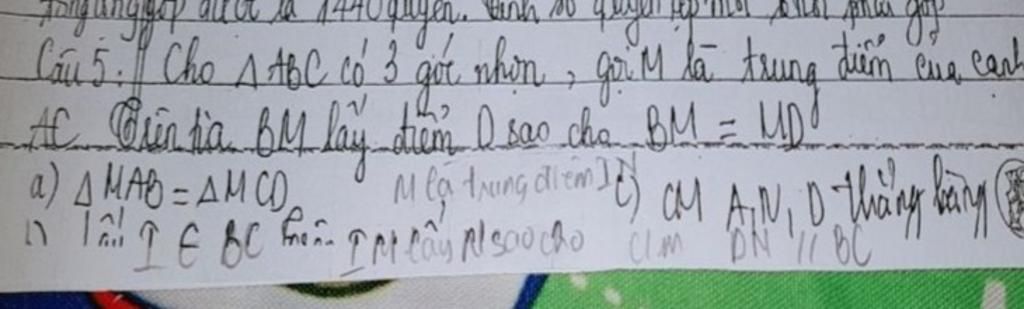 được là 1440 quyển. phải góp
Câu 5: Cho ΔABC có 3 góc nhọn, gọi M là trung điểm của cạnh
AC Trên tia BM lấy điểm D sao cho BM = MD
a) ΔMAB = ΔMCD M là trung điểm IN c) CM A, N, D thẳng hàng
Lấy I ∈ BC IM lấy N sao cho C/m DN // BC